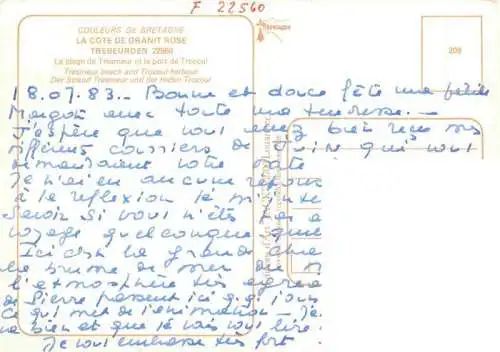 F 22560
COULEURS DE BRETAGNE
LA COTE DE GRANIT ROSE
TREBEURDEN 22560
La plage de Tresmeur et le port de Trozoul
Tresmeur beach and Trozoul harbour
Der Strand Tresmeur und der Hafen Trozoul
208
18.07.83 _ Bonne et douce fête ma petite
avec toute ma tendresse. _
J'espère que vous avez bien reçu mes
différents courriers de Juin qui vous
demandaient votre date
Je n'ai eu aucune réponse
à la réflexion je
savoir si vous n'êtes pas
voyage quelconque
Ici c'est la grande
brume de mer
l'atmosphère très
Pierre passent ici
ce qui met de l'animation _ Je
bien et que je vais vous lire!
Je vous embrasse très fort